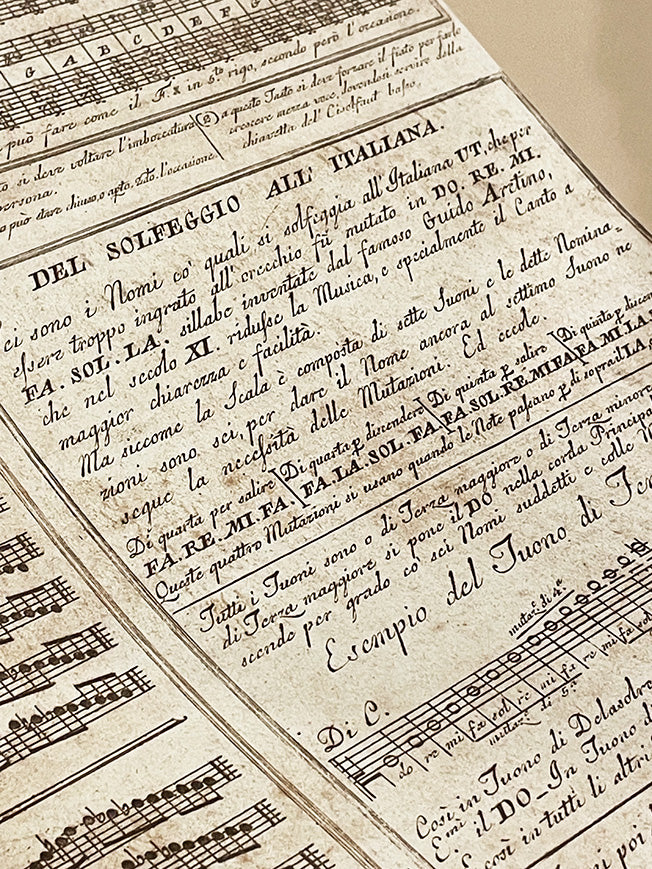 G A B C D E F G
può fare come il F. & in 5to rigo, secondo però l'occasione.
si deve voltare l'imboccatura
persona.
può dare chiuso, o apto. 2do. l'occasione.
(2) a questo Tasto si deve forzare il fiato per farlo
crescere mezza voce dovendosi servire della
chiavetta dell' Cisolfaut basso.
DEL SOLFEGGIO ALL' ITALIANA.
ci sono i Nomi co' quali si solfeggia all'Italiana UT, che per
essere troppo ingrato all' orecchio fù mutato in DO. RE. MI.
FA. SOL. LA. sillabe inventate dal famoso Guido Aretino,
che nel secolo XI. ridusse la Musica, e specialmente il Canto a
maggior chiarezza e facilità.
Ma siccome la Scala è composta di sette Suoni e le dette Nomina-
zioni sono sei, per dare il Nome ancora al settimo Suono ne
segue la necessità delle Mutazioni. Ed eccole.
Di quarta per salire
FA. RE. MI. FA.
Di quarta p. discendere
FA. LA. SOL. FA.
Di quinta p. salire
FA. SOL. RE. MI FA
Di quinta p. discen
FA FA. MI. LA
Queste quattro Mutazioni si usano quando le Note passano p. di sopra il LA
Tutti i Tuoni sono o di Terza maggiore o di Terza minore
di Terza maggiore si pone il DO nella corda Principa
scende per grado co' sei Nomi suddetti e colle
Esempio del Tuono di Ter
Di C.
mutaz. di 4a
do re mi fa sol re mi fa re mi fa sol
mutaz. di 5a
Così in Tuono di Delasolre
Emi. il DO_In Tuono di
E così in tutti li altri
poi